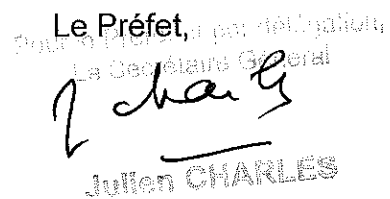 Le Préfet,
Pour le Préfet et par délégation,
Le Secrétaire Général
J Charles
Julien CHARLES